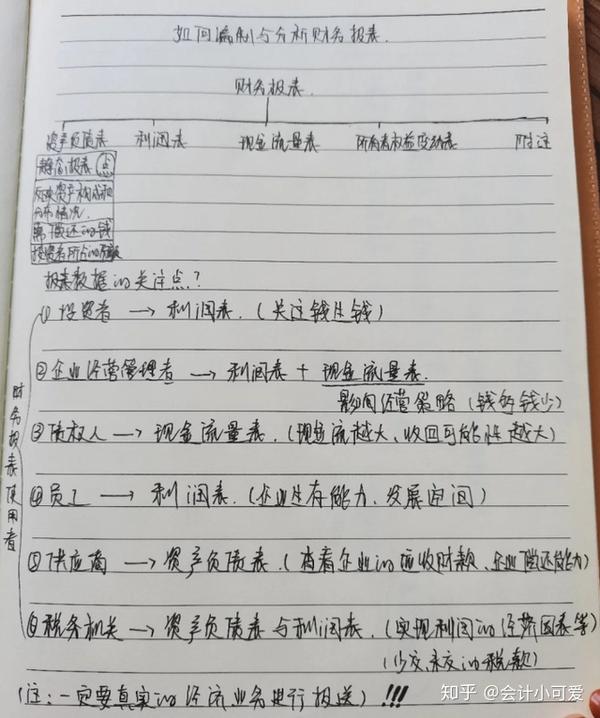 如何编制与分析财务报表.
财务报表.
资产负债表 利润表 现金流量表 所有者权益变动表 附注
静态报表(点)
反映资产构成和
分布情况.
需偿还的钱
投资者所占的份额
报表数据的关注点?
财务报表使用者
①投资者 → 利润表.(关注钱生钱)
②企业经营管理者 → 利润表 + 现金流量表.
影响经营策略(钱多钱少)
③债权人 → 现金流量表.(现金流越大、收回可能性越大)
④员工 → 利润表.(企业生存能力、发展空间)
⑤供应商 → 资产负债表.(查看企业的应收财款、企业偿还能力)
⑥税务机关 → 资产负债表与利润表.(实现利润的经济因素等)
(少交、未交的税款)
(注:一定要真实的经济业务进行报送)!!!
知乎 @会计小可爱